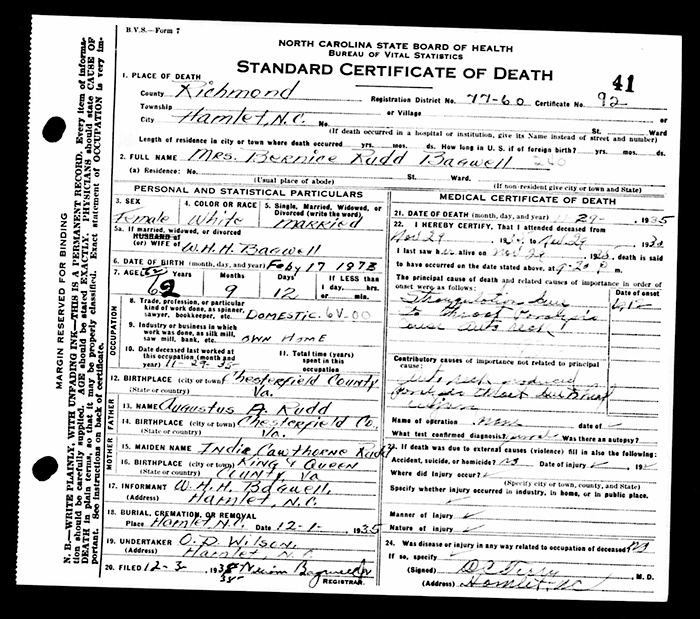 B.V.S.—Form 7
NORTH CAROLINA STATE BOARD OF HEALTH
BUREAU OF VITAL STATISTICS
STANDARD CERTIFICATE OF DEATH
41
1. PLACE OF DEATH
County Richmond Registration District No. 77-60 Certificate No. 92
Township or Village or
City Hamlet, N.C. No. St. Ward
(If death occurred in a hospital or institution, give its Name instead of street and number)
Length of residence in city or town where death occurred yrs. mos. ds. How long in U. S. if of foreign birth? yrs. mos. ds.
2. FULL NAME Mrs. Bernice Rudd Bagwell
(a) Residence: No. St. Ward
(Usual place of abode) (If non-resident give city or town and State)
PERSONAL AND STATISTICAL PARTICULARS
3. SEX 4. COLOR OR RACE 5. Single, Married, Widowed, or Divorced (write the word)
Female White Married
5a. If married, widowed, or divorced
HUSBAND of
(or) WIFE of W.H.H. Bagwell
6. DATE OF BIRTH (month, day, and year) Feby 17 1873
7. AGE Years Months Days If LESS than
62 9 12 1 day, hrs.
or min.
OCCUPATION
8. Trade, profession, or particular
kind of work done, as spinner,
sawyer, bookkeeper, etc. Domestic. 6V-00
9. Industry or business in which
work was done, as silk mill,
saw mill, bank, etc. Own Home
10. Date deceased last worked at
this occupation (month and
year) 11-29-35
11. Total time (years)
spent in this
occupation
12. BIRTHPLACE (city or town) Chesterfield County
(State or country) Va.
FATHER
13. NAME Augustus A. Rudd
14. BIRTHPLACE (city or town) Chesterfield Co.
(State or country) Va.
MOTHER
15. MAIDEN NAME India Cawthorne Rudd
16. BIRTHPLACE (city or town) King & Queen
(State or country) County, Va
17. INFORMANT W.H.H. Bagwell,
(Address) Hamlet, N.C.
18. BURIAL, CREMATION, OR REMOVAL
Place Hamlet, N.C. Date 12-1- 1935
19. UNDERTAKER O.D. Wilson,
(Address) Hamlet, N.C.
20. FILED 12-3- 193
REGISTRAR.
MEDICAL CERTIFICATE OF DEATH
21. DATE OF DEATH (month, day, and year) 11-29- 1935
22. I HEREBY CERTIFY, That I attended deceased from
Nov 29 Nov 29
I last saw h alive on Nov 29 death is said
to have occurred on the date stated above, at m.
The principal cause of death and related causes of importance in order of
onset were as follows:
Date of onset
Strangulation due
to throat Paralysis
Contributory causes of importance not related to principal
cause:
Name of operation none date of
What test confirmed diagnosis? Was there an autopsy?
23. If death was due to external causes (violence) fill in also the following:
Accident, suicide, or homicide? no Date of injury 19
Where did injury occur?
(Specify city or town, county, and State)
Specify whether injury occurred in industry, in home, or in public place.
Manner of injury
Nature of injury
24. Was disease or injury in any way related to occupation of deceased? no
If so, specify
(Signed) D.C. Terry M.D.
(Address) Hamlet NC
MARGIN RESERVED FOR BINDING
N. B.—WRITE PLAINLY, WITH UNFADING INK—THIS IS A PERMANENT RECORD. Every item of informa-
tion should be carefully supplied. AGE should be stated EXACTLY. PHYSICIANS should state CAUSE OF
DEATH in plain terms, so that it may be properly classified. Exact statement of OCCUPATION is very im-
portant. See instructions on back of certificate.